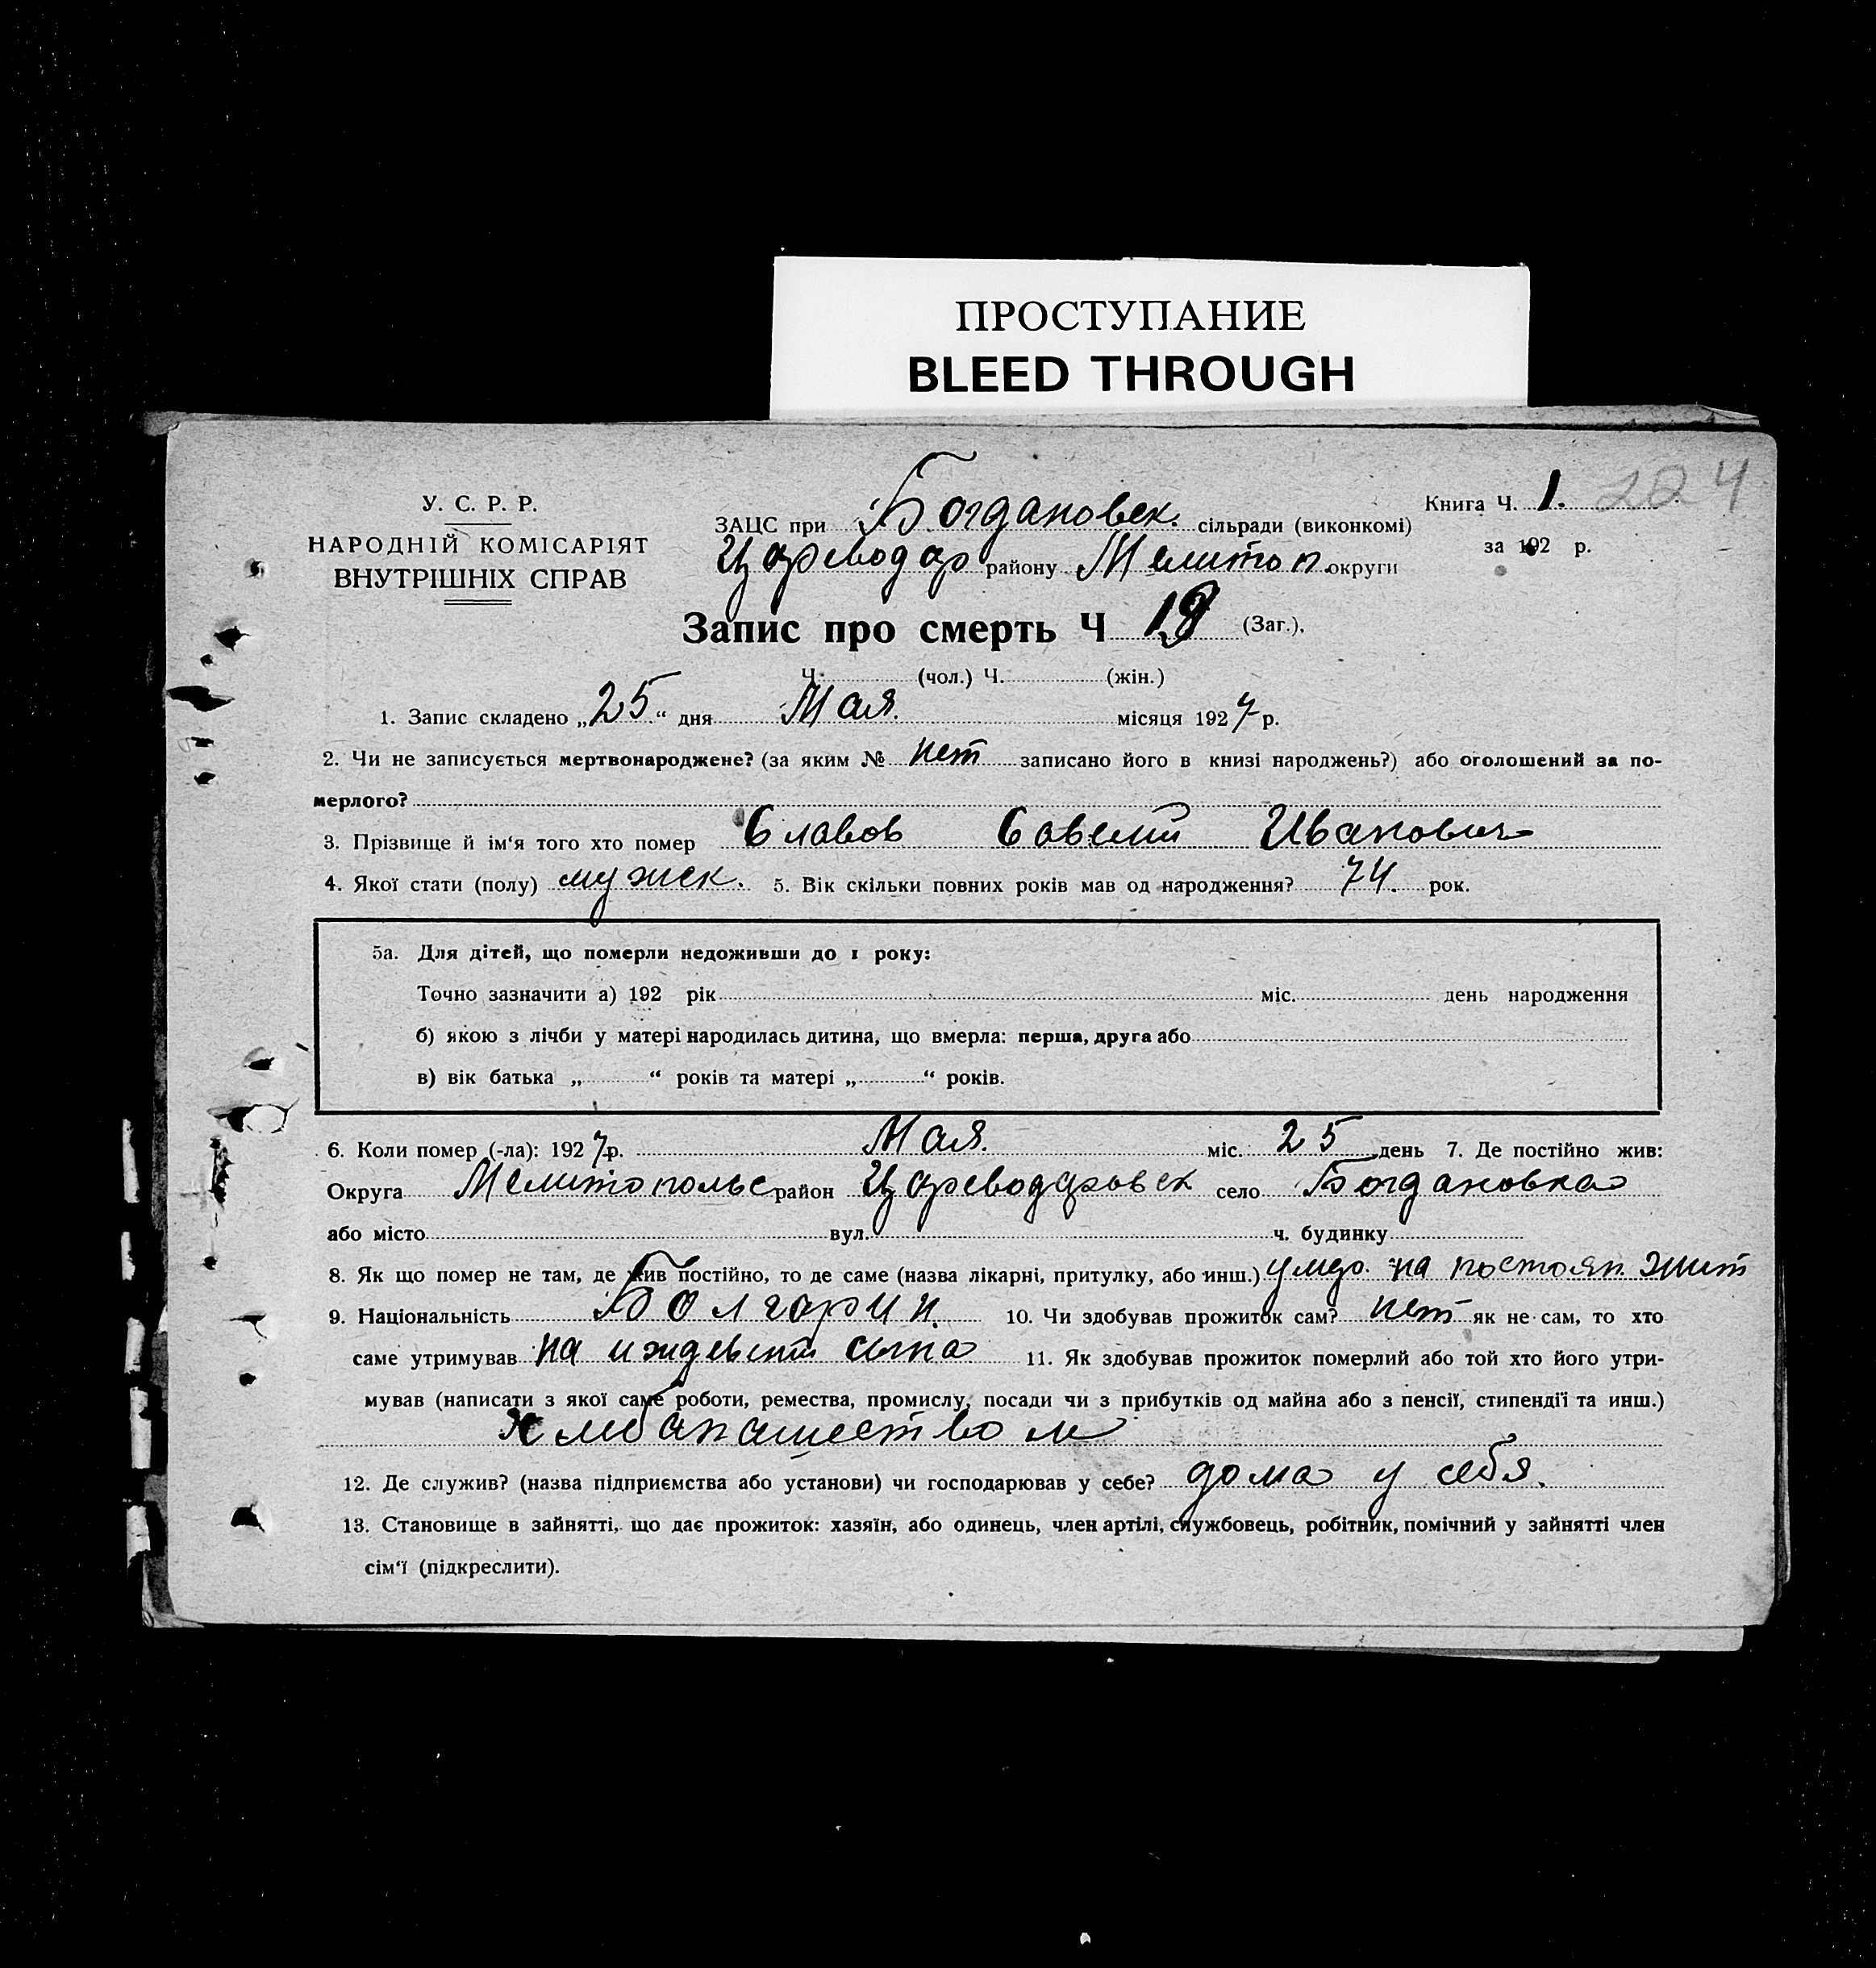 ПРОСТУПАНИЕ
BLEED THROUGH
У. С. Р. Р.
НАРОДНІЙ КОМІСАРІЯТ
ВНУТРІШНІХ СПРАВ
ЗАЦС при Богдановск. сільради (виконкомі)
Цареводар району Мелитоп. округи
Книга Ч. 1. 224
за 192 р.
Запис про смерть Ч 19 (Заг.).
Ч. (чол.) Ч. (жін.)
1. Запис складено „25“ дня Мая. місяця 1927 р.
2. Чи не записується мертвонароджене? (за яким № нет записано його в книзі народжень?) або оголошений за по-
мерлого?
3. Прізвище й ім‘я того хто помер Славов Савелий Иванович
4. Якої стати (полу) мужск. 5. Вік скільки повних років мав од народження? 74. рок.
5а. Для дітей, що померли недоживши до 1 року:
Точно зазначити а) 192 рік міс. день народження
б) якою з лічби у матері народилась дитина, що вмерла: перша, друга або
в) вік батька „ “ років та матері „ “ років.
6. Коли помер (-ла): 1927 р. Мая. міс. 25 день 7. Де постійно жив:
Округа Мелитопольс район Цареводаровск село Богдановка
або місто вул. ч. будинку
8. Як що помер не там, де жив постійно, то де саме (назва лікарні, притулку, або инш.) на постоян. жит
9. Національність Болгарин. 10. Чи здобував прожиток сам? нет як не сам, то хто
саме утримував на иждевени сына 11. Як здобував прожиток померлий або той хто його утри-
мував (написати з якої саме роботи, ремества, промислу, посади чи з прибутків од майна або з пенсії, стипендії та инш.)
хлебапашеством
12. Де служив? (назва підприємства або установи) чи господарював у себе? дома у себя.
13. Становище в зайнятті, що дає прожиток: хазяїн, або одинець, член артілі, службовець, робітник, помічний у зайнятті член
сім‘ї (підкреслити).